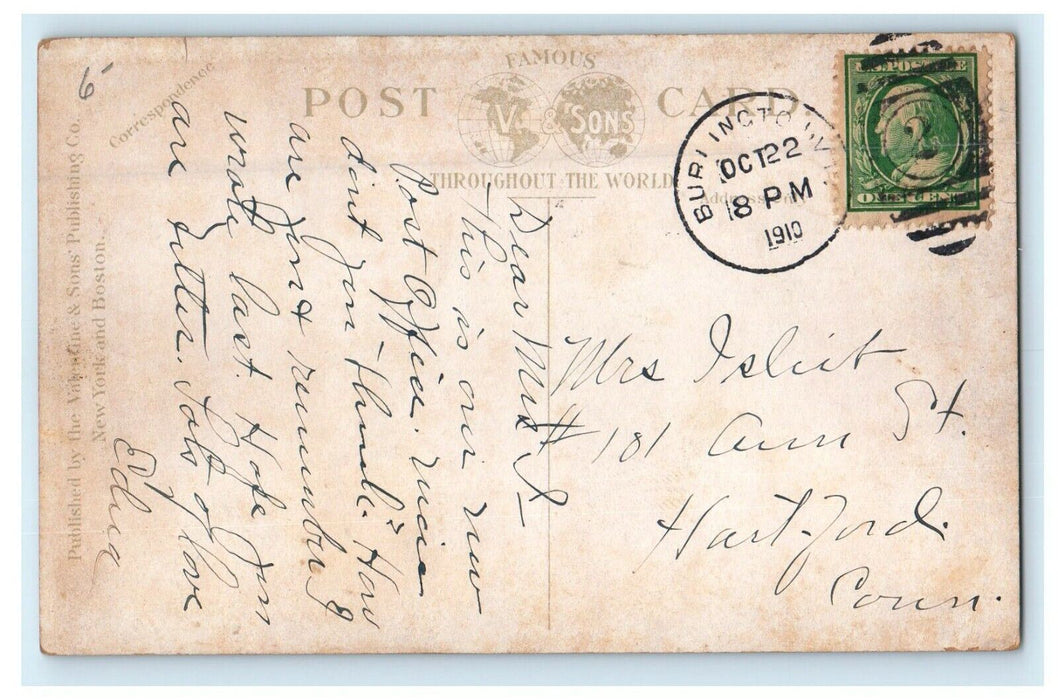 5
Correspondence
FAMOUS
POST CARD
V. & SONS
THROUGHOUT THE WORLD
Address Only
Published by the Valentine & Sons' Publishing Co.
New York and Boston.
U.S. POSTAGE
ONE CENT
2
BURLINGTON
OCT 22
8 PM
1910
Dear Mrs I—
This is our new
Post Office. nice
dont you think. How
are you & remember I
wrote last. Hope you
are better. Lots of love
Edna
Mrs Isleib
# 181 Ann St.
Hartford.
Conn.